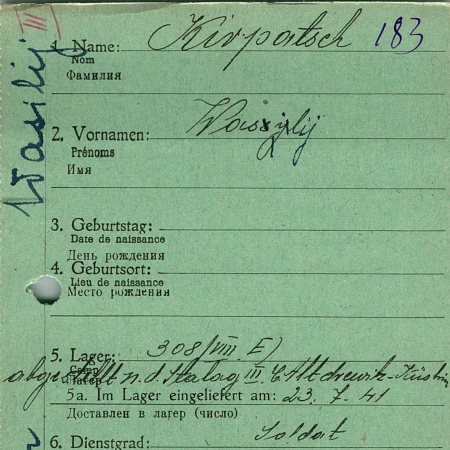 Wasilij III
1. Name: Kirpatsch 183
Nom
Фамилия
2. Vornamen: Wassilij
Prénoms
Имя
3. Geburtstag:
Date de naissance
День рождения
4. Geburtsort:
Lieu de naissance
Место рождения
5. Lager: 308 (VIII E)
Camp
Лагерь
n. d. Stalag III C Altdrewitz-Küstrin
5a. Im Lager eingeliefert am: 23. 7. 41
Доставлен в лагер (число)
6. Dienstgrad: Soldat